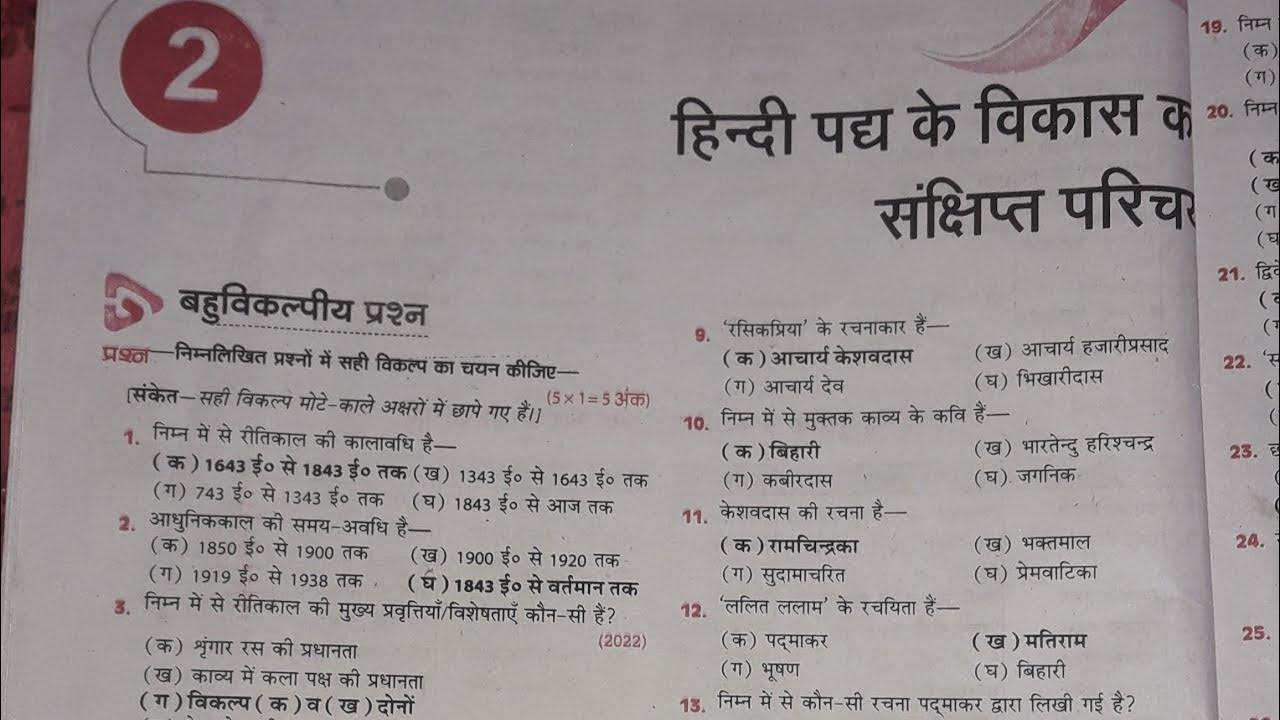 2
हिन्दी पद्य के विकास क
संक्षिप्त परिचय
बहुविकल्पीय प्रश्न
प्रश्न—निम्नलिखित प्रश्नों में सही विकल्प का चयन कीजिए—
[संकेत—सही विकल्प मोटे-काले अक्षरों में छापे गए हैं।] (5 × 1 = 5 अंक)
1. निम्न में से रीतिकाल की कालावधि है—
(क) 1643 ई० से 1843 ई० तक (ख) 1343 ई० से 1643 ई० तक
(ग) 743 ई० से 1343 ई० तक (घ) 1843 ई० से आज तक
2. आधुनिककाल की समय-अवधि है—
(क) 1850 ई० से 1900 तक (ख) 1900 ई० से 1920 तक
(ग) 1919 ई० से 1938 तक (घ) 1843 ई० से वर्तमान तक
3. निम्न में से रीतिकाल की मुख्य प्रवृत्तियाँ/विशेषताएँ कौन-सी हैं?
(2022)
(क) शृंगार रस की प्रधानता
(ख) काव्य में कला पक्ष की प्रधानता
(ग) विकल्प (क) व (ख) दोनों
9. 'रसिकप्रिया' के रचनाकार हैं—
(क) आचार्य केशवदास (ख) आचार्य हजारीप्रसाद
(ग) आचार्य देव (घ) भिखारीदास
10. निम्न में से मुक्तक काव्य के कवि हैं—
(क) बिहारी (ख) भारतेन्दु हरिश्चन्द्र
(ग) कबीरदास (घ) जगनिक
11. केशवदास की रचना है—
(क) रामचिन्द्रका (ख) भक्तमाल
(ग) सुदामाचरित (घ) प्रेमवाटिका
12. 'ललित ललाम' के रचयिता हैं—
(क) पद्माकर (ख) मतिराम
(ग) भूषण (घ) बिहारी
13. निम्न में से कौन-सी रचना पद्माकर द्वारा लिखी गई है?
19. निम्न
(क)
(ग)
20. निम्न
(क
(ख
(ग
(घ
21. द्विवे
22.
23.
24.
25.